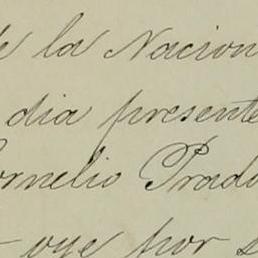 de la Nacion
dia presente
Cornelio Prado
oye por s